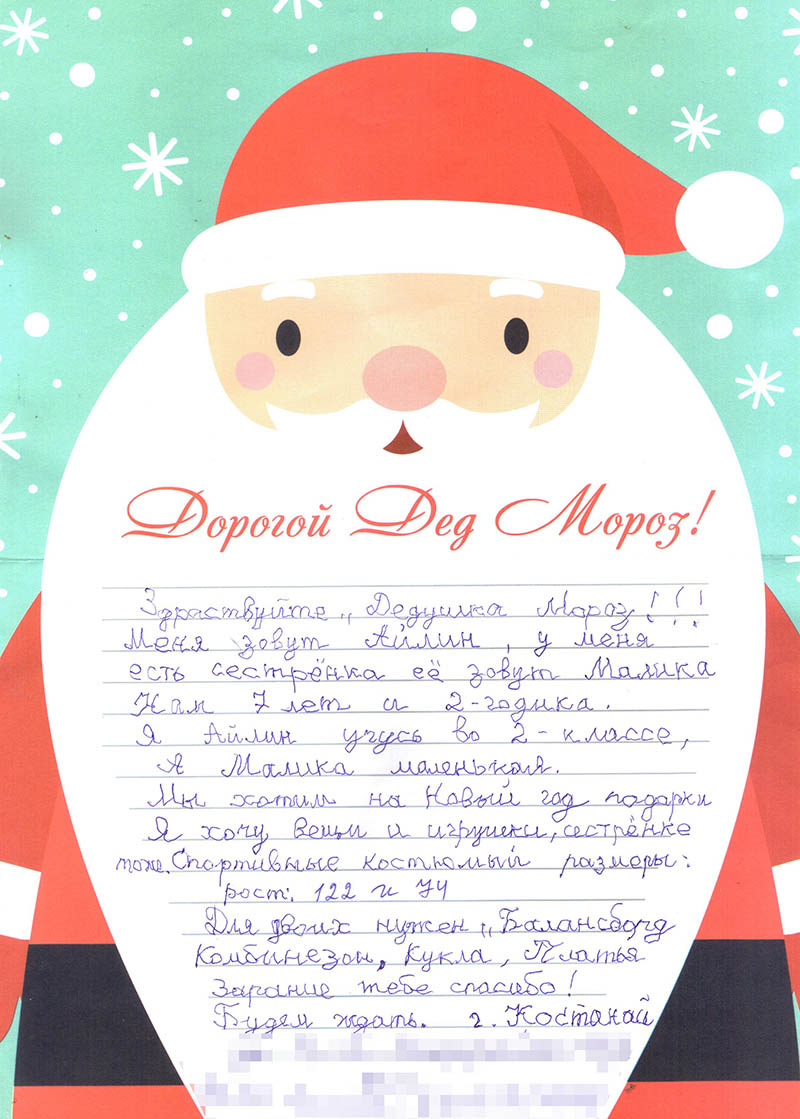 Дорогой Дед Мороз!
Здраствуйте „ Дедушка Мороз!!!
Меня зовут Айлин, у меня
есть сестрёнка её зовут Малика
Нам 7 лет и 2-годика.
Я Айлин учусь во 2-классе,
А Малика маленькая.
Мы хотим на Новый год подарки
Я хочу вещи и игрушки, сестрёнке
тоже. Спортивные костюмый размеры:
рост: 122 и 74
Для двоих нужен „Балансборд
Комбинезон, Кукла, Платья
Зарание тебе спасибо!
Будем ждать. г. Костанай